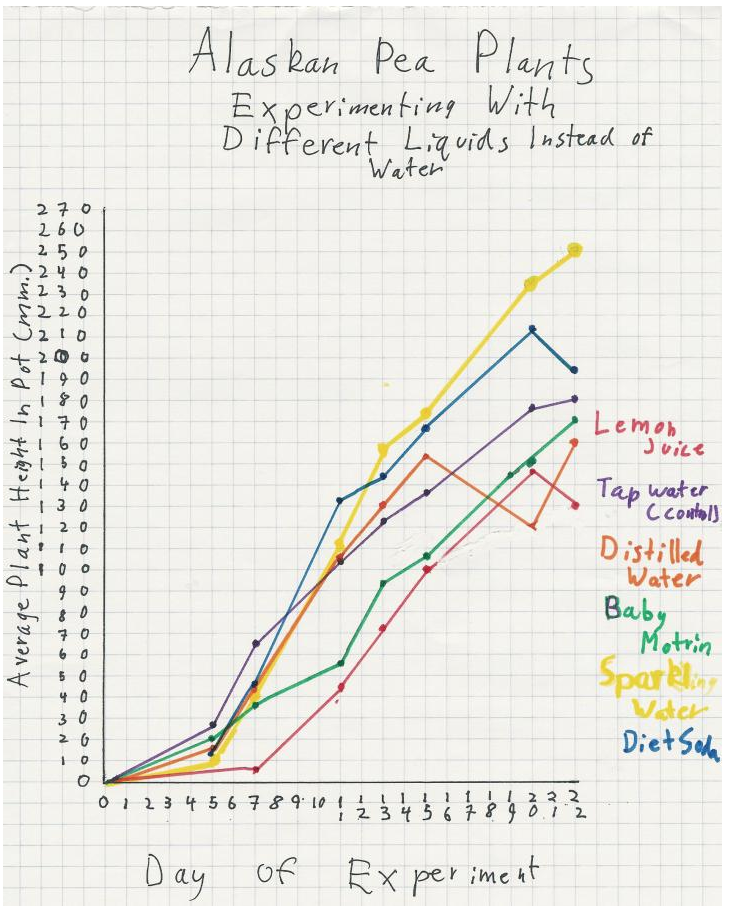 Alaskan Pea Plants
Experimenting With
Different Liquids Instead of
Water
Average Plant Height In Pot (mm.)
270
260
250
240
230
220
210
200
190
180
170
160
150
140
130
120
110
100
90
80
70
60
50
40
30
20
10
0
0 1 2 3 4 5 6 7 8 9 10 11 12 13 14 15 16 17 18 19 20 21 22
Day of Experiment
Lemon
Juice
Tap water
(control)
Distilled
Water
Baby
Motrin
Sparkling
Water
Diet Soda